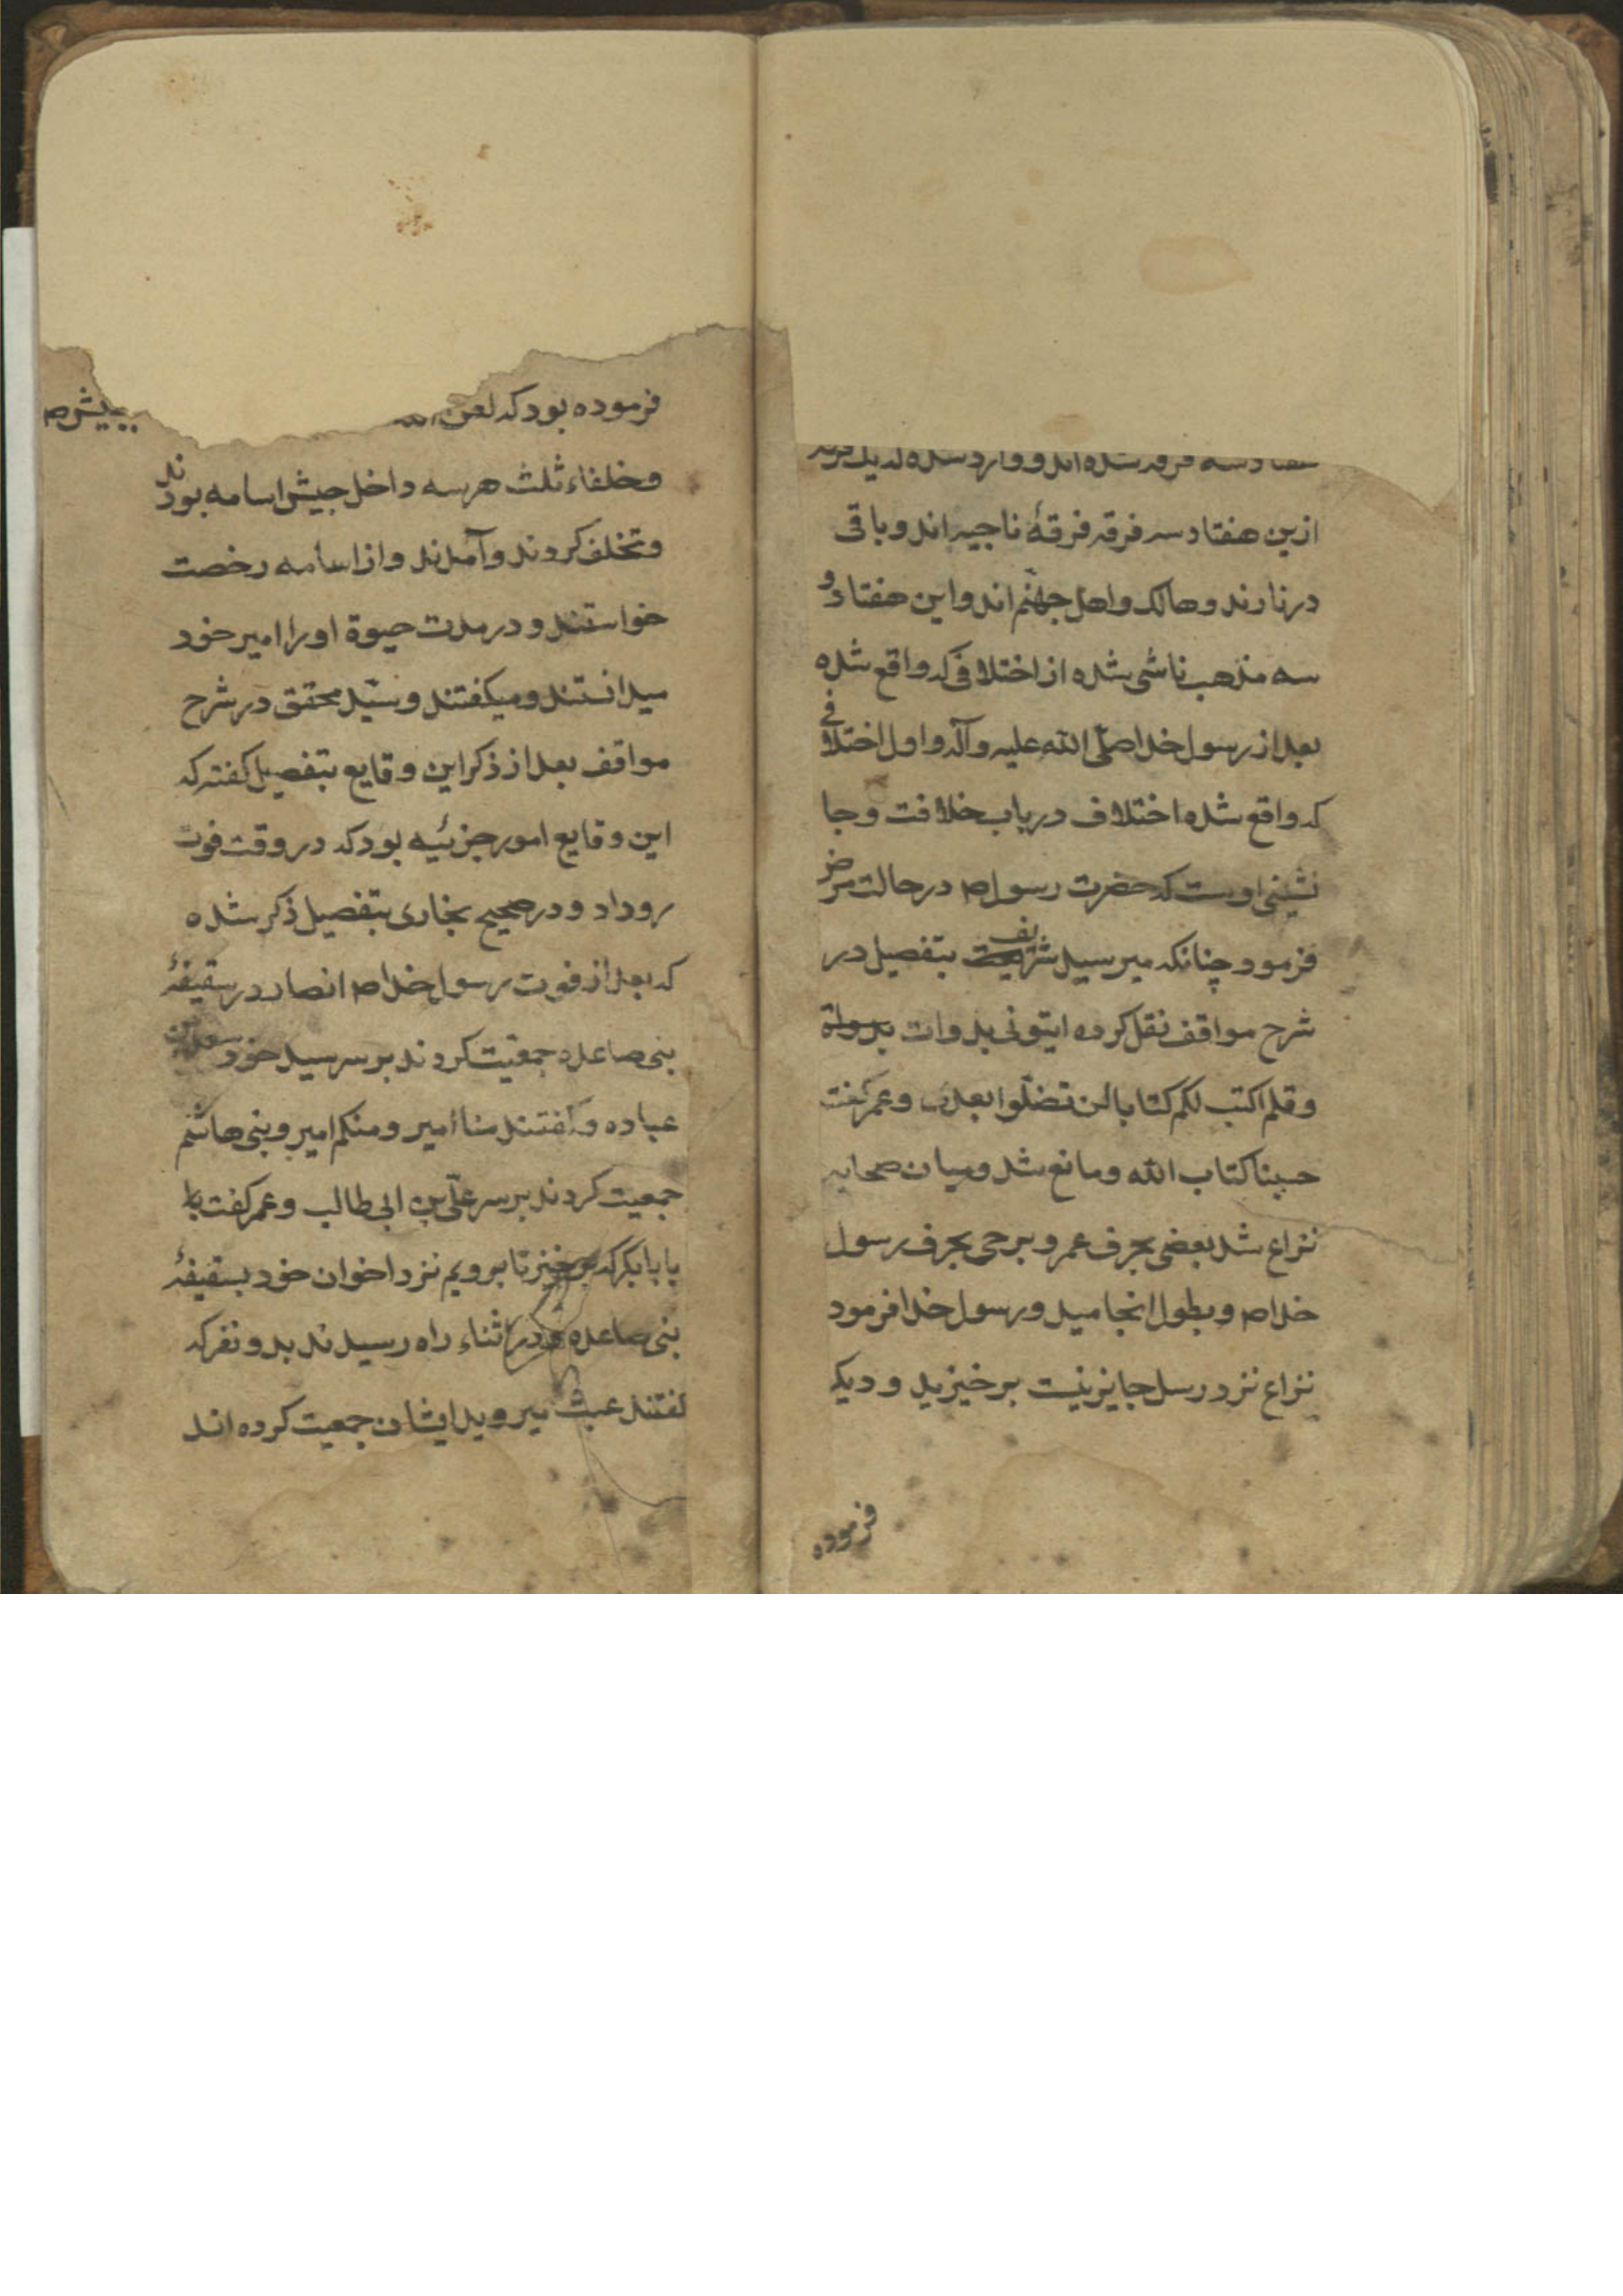 هفتاد سه فرقه شده اند و وارد شده که یک فرقه
ازین هفتاد سه فرقه فرقهٔ ناجیه اند و باقی
در نارند و هالک و اهل جهنّم اند و این هفتاد و
سه مذهب ناشی شده از اختلافی که واقع شده
بعد از رسول خدا صلّی الله علیه و آله و اول اختلافی
که واقع شده اختلاف در باب خلافت و جا
نشینی اوست که حضرت رسول ص در حالت مرض
فرمود چنانکه میر سید شریف بتفصیل در
شرح مواقف نقل کرده ایتونی بدوات
و قلم اکتب لکم کتابا لن تضلّوا بعدی و عمر گفت
حسبنا کتاب الله و مانع شد و میان صحابه
نزاع شد بعضی بحرف عمر و برخی بحرف رسول
خدا ص و بطول انجامید و رسول خدا فرمود
نزاع نزد رسل جایز نیست برخیزید و دیکر
فرموده
فرموده بود که لعن الله جیش ص
و خلفاء ثلث هر سه داخل جیش اسامه بودند
و تخلف کردند و آمدند و از اسامه رخصت
خواستند و در مدت حیوة او را امیر خود
میدانستند و میکفتند و سیّد محقق در شرح
مواقف بعد از ذکر این وقایع بتفصیل کفته که
این وقایع امور جزئیه بود که در وقت فوت
رو داد و در صحیح بخاری بتفصیل ذکر شده
که بعد از فوت رسول خدا ص انصار در سقیفهٔ
بنی صاعده جمعیت کردند بر سر سید خود سعد بن
عباده و کفتند منا امیر و منکم امیر و بنی هاشم
جمعیت کردند بر سر علّی بن ابی طالب و عمر کفت با
یا بابکر که برخیز تا برویم نزد اخوان خود بسقیفهٔ
بنی صاعده و در اثناء راه رسیدند بدو نفر که
کفتند عبث میروید ایشان جمعیت کرده اند